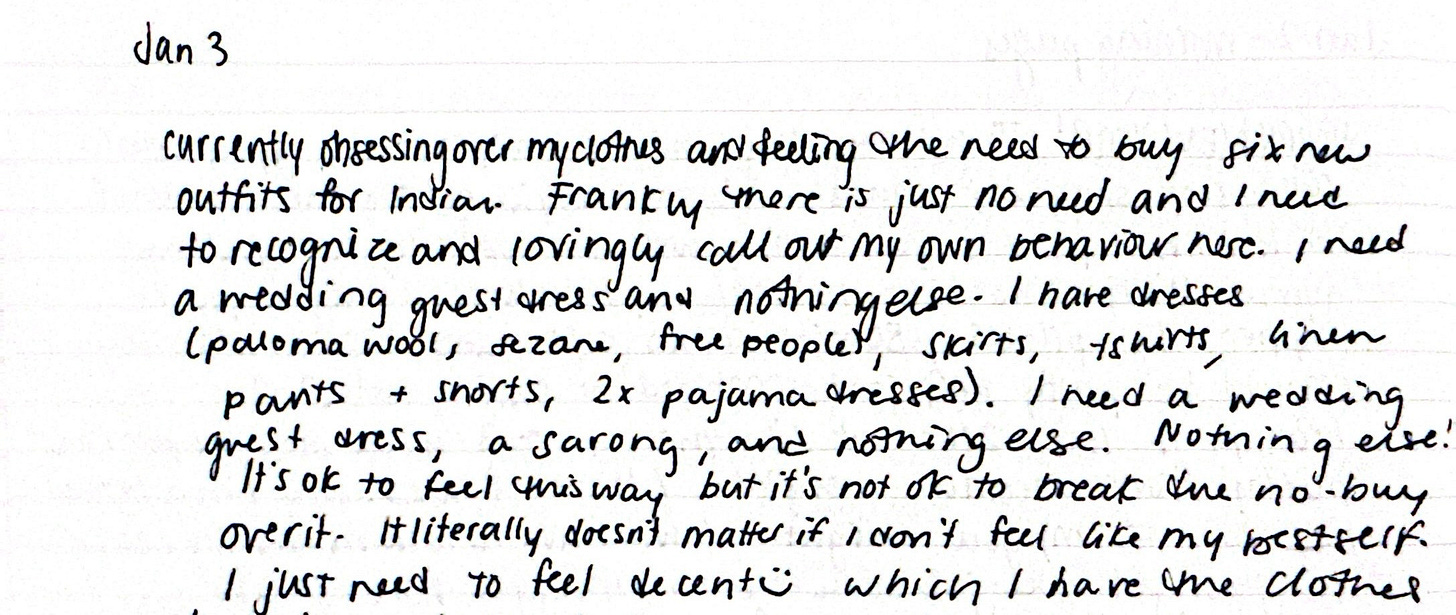 Jan 3
currently obsessing over my clothes and feeling the need to buy six new
outfits for India. Frankly there is just no need and I need
to recognize and lovingly call out my own behaviour here. I need
a wedding guest dress and nothing else. I have dresses
(paloma wool, sezane, free people), skirts, tshirts, linen
pants + shorts, 2x pajama dresses). I need a wedding
guest dress, a sarong, and nothing else. Nothing else!
It's ok to feel this way but it's not ok to break the no-buy
over it. It literally doesn't matter if I don't feel like my best self.
I just need to feel decent ü which I have the clothes